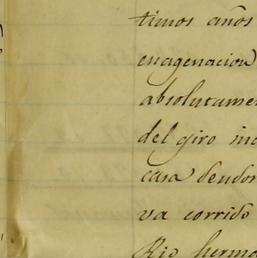 timos años
enagenacion
absolutamen
del giro in
casa deudor
va corrido
Rio hermo